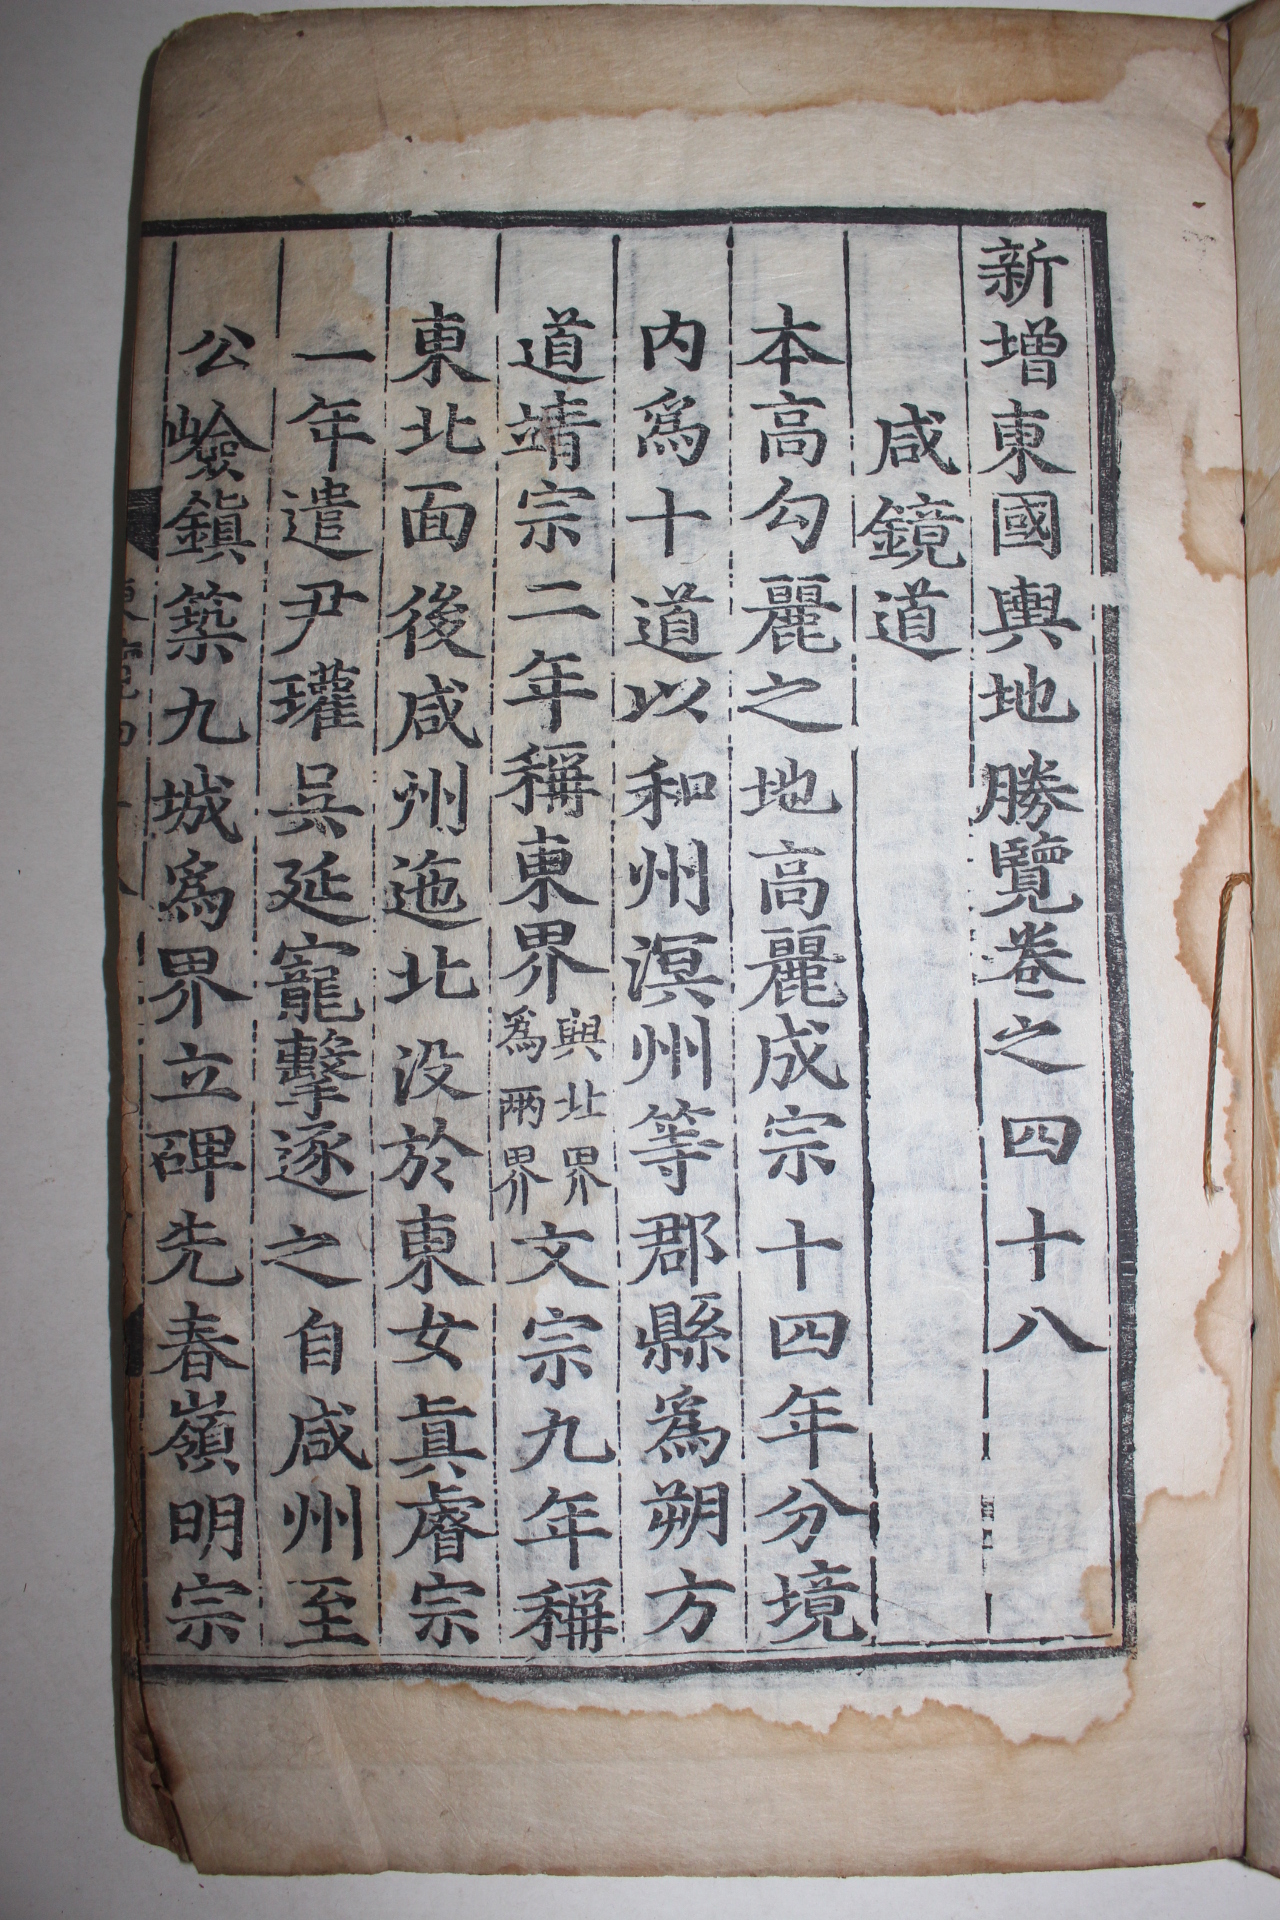 新增東國輿地勝覽卷之四十八
咸鏡道
本高勾麗之地高麗成宗十四年分境
內爲十道以和州溟州等郡縣爲朔方
道靖宗二年稱東界與北界爲兩界文宗九年稱
東北面後咸州迤北沒於東女眞睿宗
一年遣尹瓘吳延寵擊逐之自咸州至
公嶮鎭築九城爲界立碑先春嶺明宗